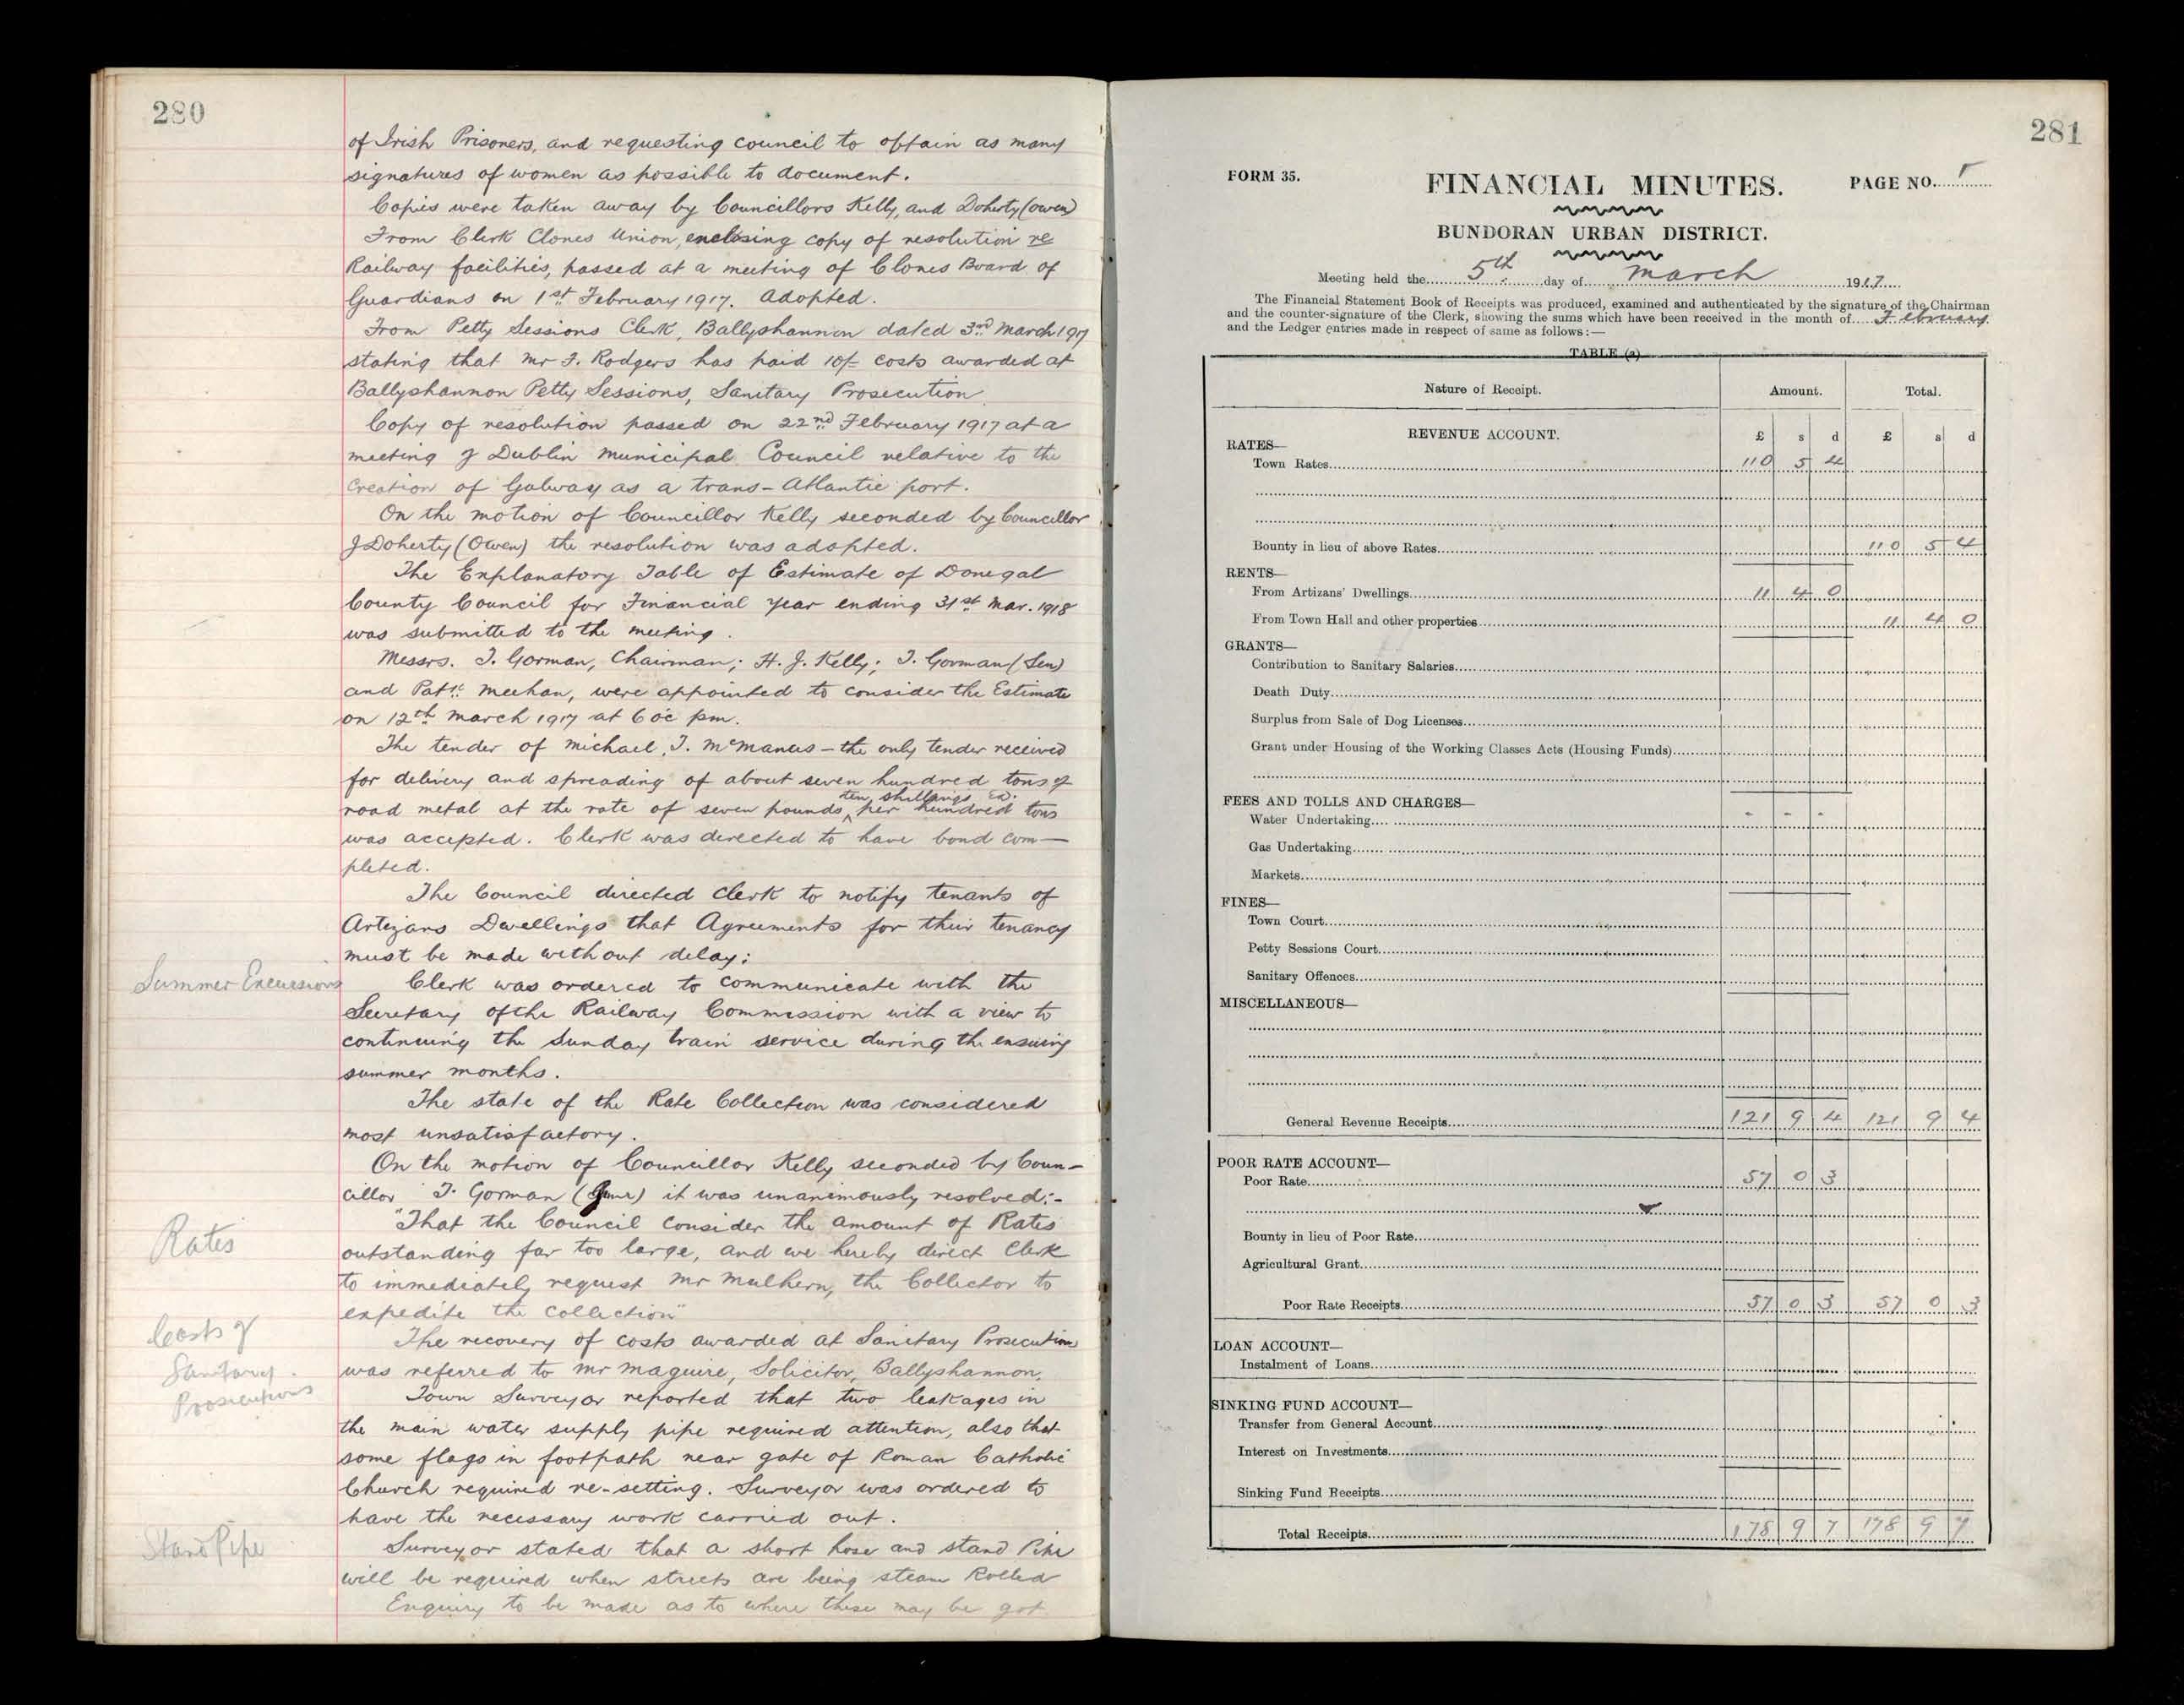 280
of Irish Prisoners, and requesting council to obtain as many
signatures of women as possible to document.
Copies were taken away by Councillors Kelly, and Doherty (Owen)
From Clerk Clones Union, enclosing copy of resolution re
Railway facilities, passed at a meeting of Clones Board of
Guardians on 1st February 1917. Adopted.
From Petty Sessions Clerk, Ballyshannon dated 3rd March 1917
stating that Mr J. Rodgers has paid 10/- costs awarded at
Ballyshannon Petty Sessions, Sanitary Prosecution.
Copy of resolution passed on 22nd February 1917 at a
meeting of Dublin Municipal Council relative to the
creation of Galway as a trans-Atlantic port.
On the motion of Councillor Kelly seconded by Councillor
J Doherty (Owen) the resolution was adopted.
The Explanatory Table of Estimate of Donegal
County Council for Financial Year ending 31st Mar. 1918
was submitted to the meeting.
Messrs. T. Gorman, Chairman; H. J. Kelly; T. Gorman (Sen)
and Patk. Meehan, were appointed to consider the Estimate
on 12th March 1917 at 6 oc pm.
The tender of Michael, J. McManus - the only tender received
for delivery and spreading of about seven hundred tons of
ten shillings
road metal at the rate of seven pounds per hundred tons
was accepted. Clerk was directed to have bond com-
pleted.
The Council directed Clerk to notify tenants of
Artizans Dwellings that Agreements for their tenancy
must be made without delay:
Summer Excursions
Clerk was ordered to communicate with the
Secretary of the Railway Commission with a view to
continuing the Sunday train service during the ensuing
summer months.
The state of the Rate Collection was considered
most unsatisfactory.
On the motion of Councillor Kelly seconded by Coun-
cillor T. Gorman (Junr) it was unanimously resolved:-
"That the Council consider the amount of Rates
Rates
outstanding far too large, and we hereby direct Clerk
to immediately request Mr Mulhern, the Collector to
expedite the collection"
Costs of
Sanitary
Prosecutions
The recovery of costs awarded at Sanitary Prosecutions
was referred to Mr Maguire, Solicitor, Ballyshannon.
Town Surveyor reported that two leakages in
the main water supply pipe required attention, also that
some flags in footpath near gate of Roman Catholic
Church required re-setting. Surveyor was ordered to
have the necessary work carried out.
Stand Pipe
Surveyor stated that a short hose and stand Pipe
will be required when streets are being steam Rolled
Enquiry to be made as to where these may be got
281
FORM 35.
FINANCIAL MINUTES.
PAGE NO.
BUNDORAN URBAN DISTRICT.
Meeting held the 5th day of March 1917
The Financial Statement Book of Receipts was produced, examined and authenticated by the signature of the Chairman
and the counter-signature of the Clerk, showing the sums which have been received in the month of February
and the Ledger entries made in respect of same as follows:—
TABLE (a)
Nature of Receipt. Amount. Total.
REVENUE ACCOUNT. £ s d £ s d
RATES—
Town Rates 110 5 4
Bounty in lieu of above Rates 110 5 4
RENTS—
From Artizans' Dwellings 11 4 0
From Town Hall and other properties 11 4 0
GRANTS—
Contribution to Sanitary Salaries
Death Duty
Surplus from Sale of Dog Licenses
Grant under Housing of the Working Classes Acts (Housing Funds)
FEES AND TOLLS AND CHARGES—
Water Undertaking - - -
Gas Undertaking
Markets
FINES—
Town Court
Petty Sessions Court
Sanitary Offences
MISCELLANEOUS—
General Revenue Receipts 121 9 4 121 9 4
POOR RATE ACCOUNT—
Poor Rate 57 0 3
Bounty in lieu of Poor Rate
Agricultural Grant
Poor Rate Receipts 57 0 3 57 0 3
LOAN ACCOUNT—
Instalment of Loans
SINKING FUND ACCOUNT—
Transfer from General Account
Interest on Investments
Sinking Fund Receipts
Total Receipts 178 9 7 178 9 7